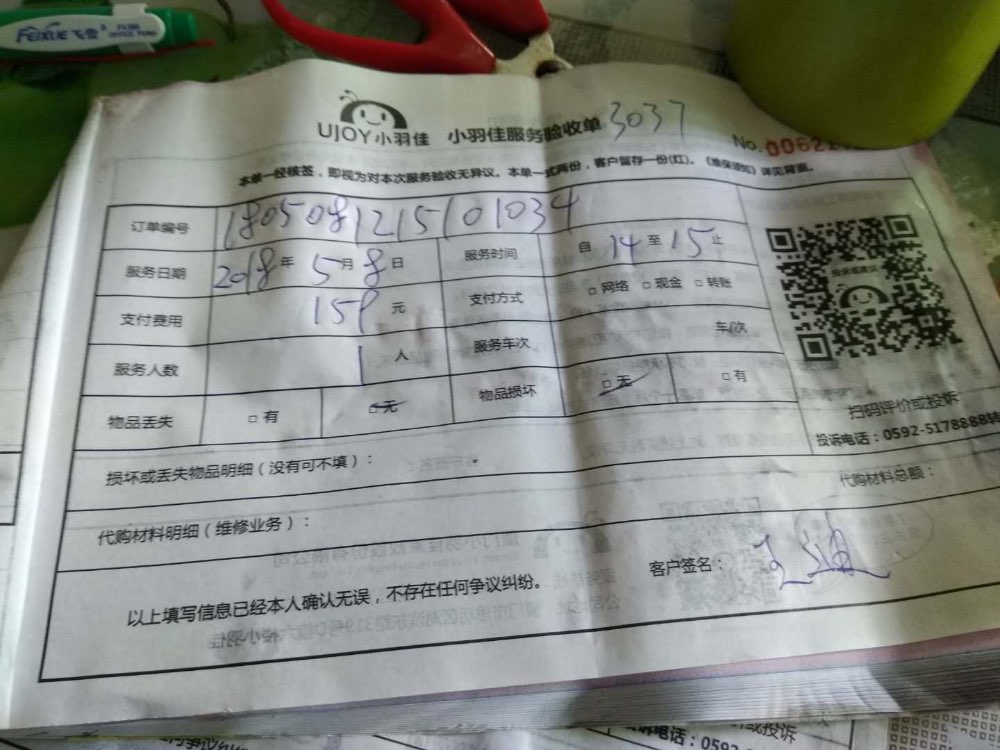 FEIXUE 飞雪
OFFICE PENS
UJOY小羽佳 小羽佳服务验收单 3037
No.
本单一经核签，即视为对本次服务验收无异议。本单一式两份，客户留存一份(红)。《维保须知》详见背面。
订单编号 1805081215101034
服务日期 2018年5月8日 服务时间 自14至15止
支付费用 159元 支付方式 □网络 □现金 □转账
服务人数 1人 服务车次 车/次
物品丢失 □有 □无 物品损坏 □无 □有
扫码评价或投诉
投诉电话：0592-5178888转
损坏或丢失物品明细（没有可不填）：
代购材料明细（维修业务）： 代购材料总额：
以上填写信息已经本人确认无误，不存在任何争议纠纷。 客户签名：